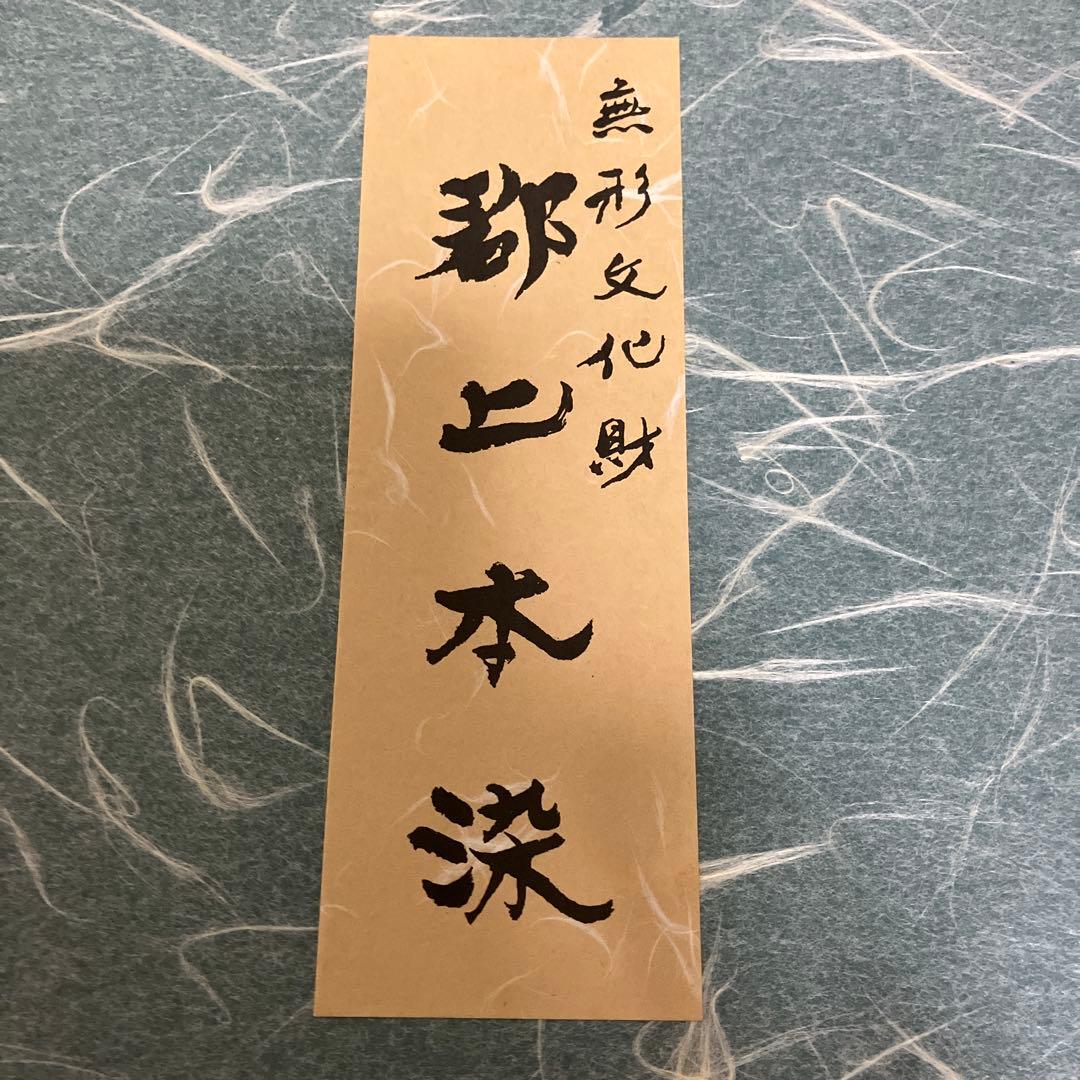 無形文化財
郡上本染